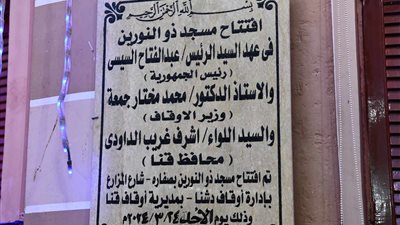 بسم الله الرحمن الرحيم
افتتاح مسجد ذو النورين
فى عهد السيد الرئيس/ عبدالفتاح السيسى
(رئيس الجمهورية)
والاستاذ الدكتور/ محمد مختار جمعة
(وزير الاوقاف)
والسيد اللواء/ اشرف غريب الداودى
(محافظ قنا)
تم افتتاح مسجد ذو النورين بصفاره - شارع المزارع
بإدارة أوقاف دشنا - بمديرية أوقاف قنا
وذلك يوم الأحد ٢٠٢٤/٣/٢٤